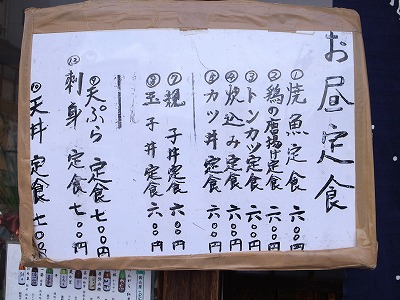 お昼定食
①焼魚定食 六〇〇円
②鶏の唐揚げ定食 六〇〇円
③トンカツ定食 六〇〇円
④炊込み定食 六〇〇円
⑤カツ丼定食 六〇〇円
⑦親子丼定食 六〇〇円
⑧玉子丼定食 六〇〇円
天ぷら定食 七〇〇円
刺身定食 七〇〇円
天丼定食 七〇〇円